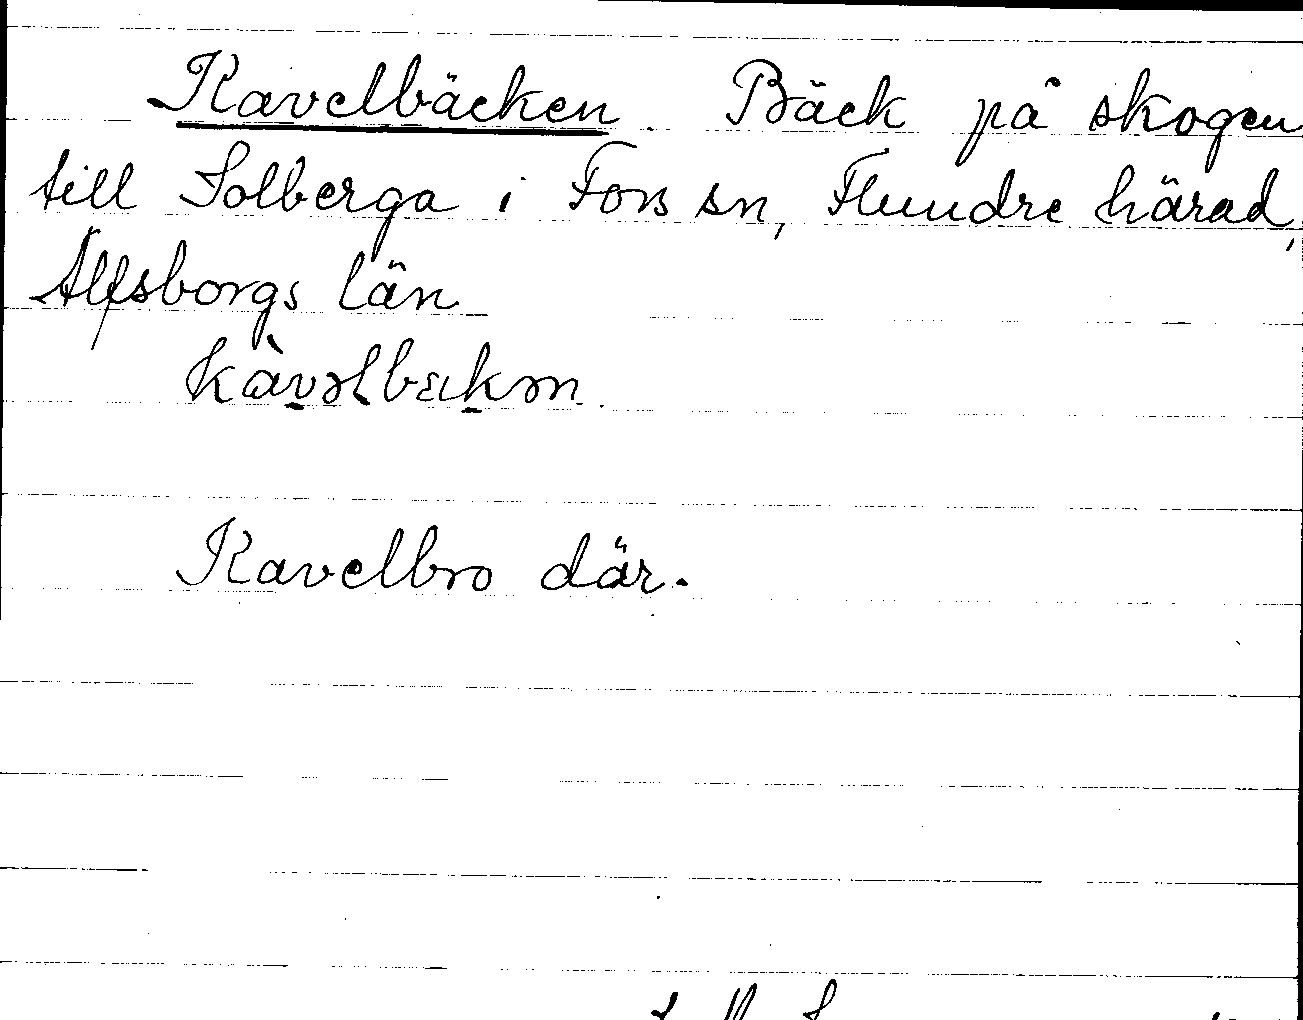 Kavelbäcken. Bäck på skogen
till Solberga i Fors sn, Flundre härad,
Älfsborgs län
kàvəlbɛkən.
Kavelbro där.